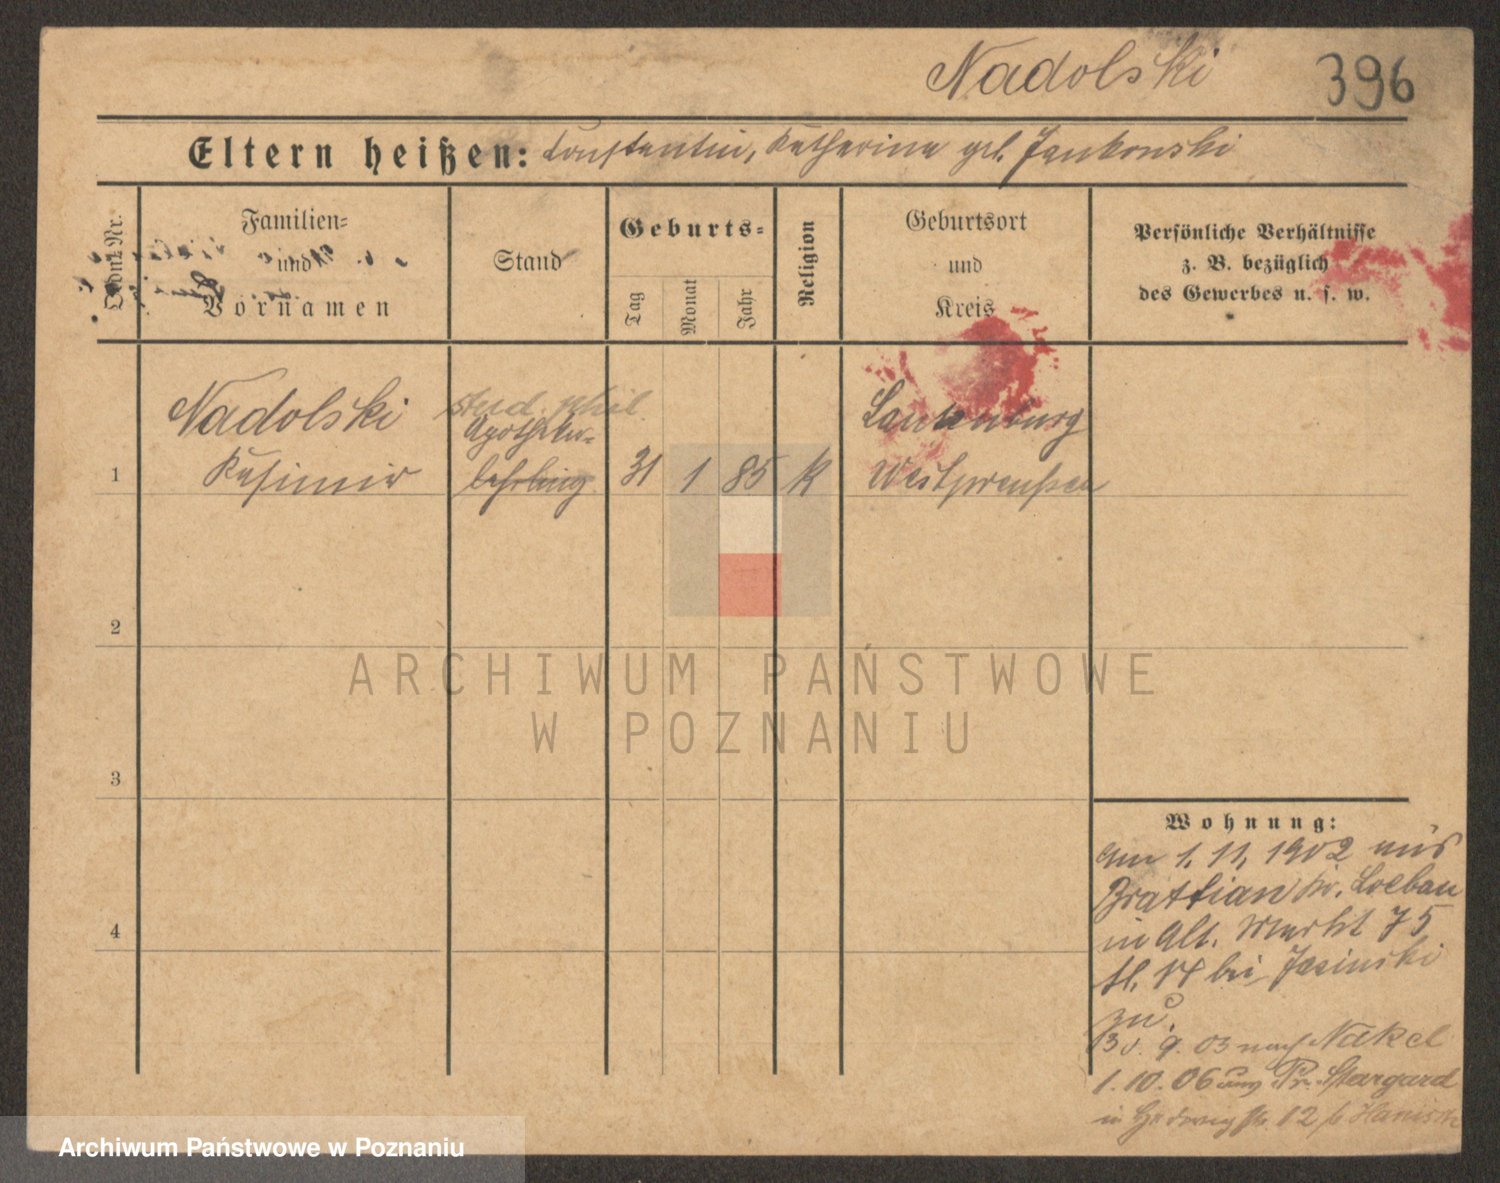 Nadolski 396
Eltern heißen: Constantin, Katharina geb. Jankowski
Ordn. Nr.
Familien-
und
Vornamen
Stand
Geburts-
Tag
Monat
Jahr
Religion
Geburtsort
und
Kreis
Persönliche Verhältnisse
z. B. bezüglich
des Gewerbes u. s. w.
Nadolski
Kasimir
stud. phil.
Apotheker-
lehrling
1
31 1 85 K
Lautenburg
Westpreußen
2
3
4
Wohnung:
am 1. 11. 1902 aus
Brattian Kr. Loebau
in Alt. Markt 75
bei Jasinski
zu.
9. 03 nach Nakel
1. 10. 06 Pr. Stargard
in Hedwigstr. 12
ARCHIWUM PAŃSTWOWE
W POZNANIU
Archiwum Państwowe w Poznaniu